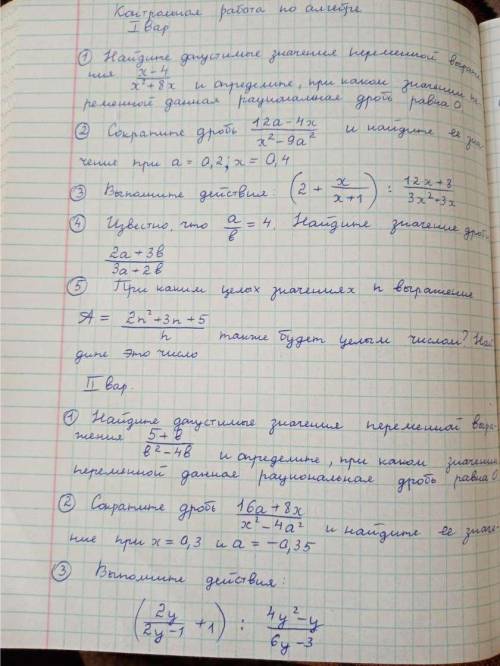 Контрольная работа по алгебре
I вар
① Найдите допустимые значения переменной выраже-
ния (x-4)/(x²+8x) и определите, при каком значении пе-
ременной данная рациональная дробь равна 0.
② Сократите дробь (12a-4x)/(x²-9a²) и найдите ее зна-
чение при a = 0,2; x = 0,4
③ Выполните действия: (2 + x/(x+1)) : (12x+8)/(3x²+3x)
④ Известно, что a/b = 4. Найдите значение дроби
(2a+3b)/(3a+2b)
⑤ При каким целых значениях n выражение
A = (2n²+3n+5)/n также будет целым числом? Най
дите это число
II вар.
① Найдите допустимые значения переменной выра-
жения (5+b)/(b²-4b) и определите, при каком значении
переменной данная рациональная дробь равна 0
② Сократите дробь (16a+8x)/(x²-4a²) и найдите ее значе-
ние при x = 0,3 и a = -0,35
③ Выполните действия:
(2y/(2y-1) + 1) : (4y²-y)/(6y-3)